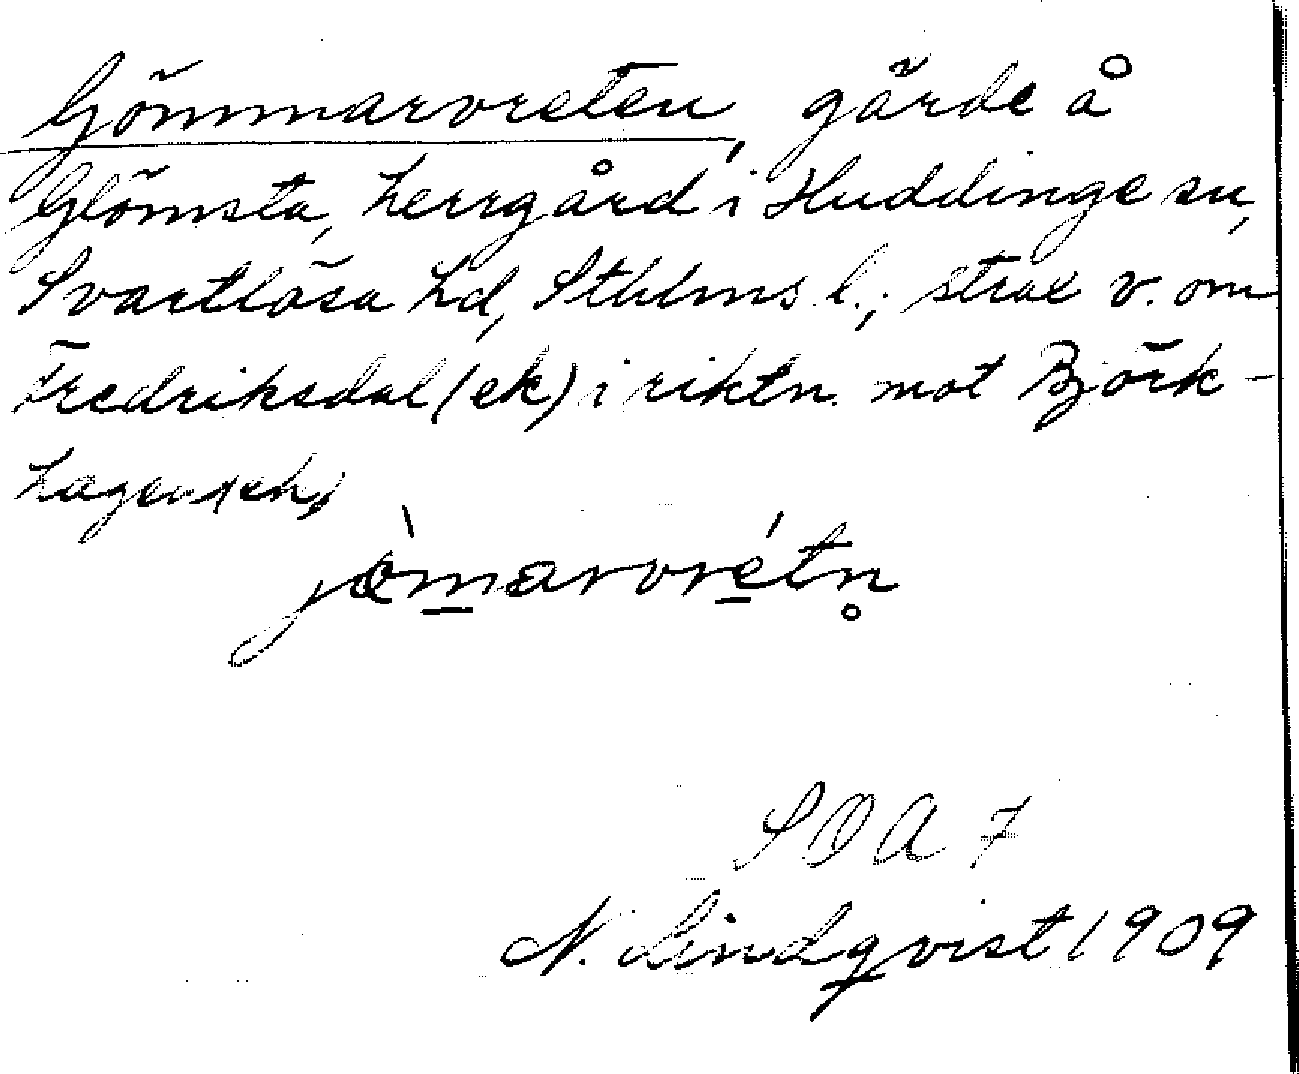 Gömmarvreten, gärde å
Glömsta, herrgård i Huddinge sn,
Svartlösa hd, Sthlms l.; strax v. om
Fredriksdal (ek) i riktn. mot Björk-
hagen (ek)
jö̀marvrétn̥
SOA 7
N. Lindqvist 1909